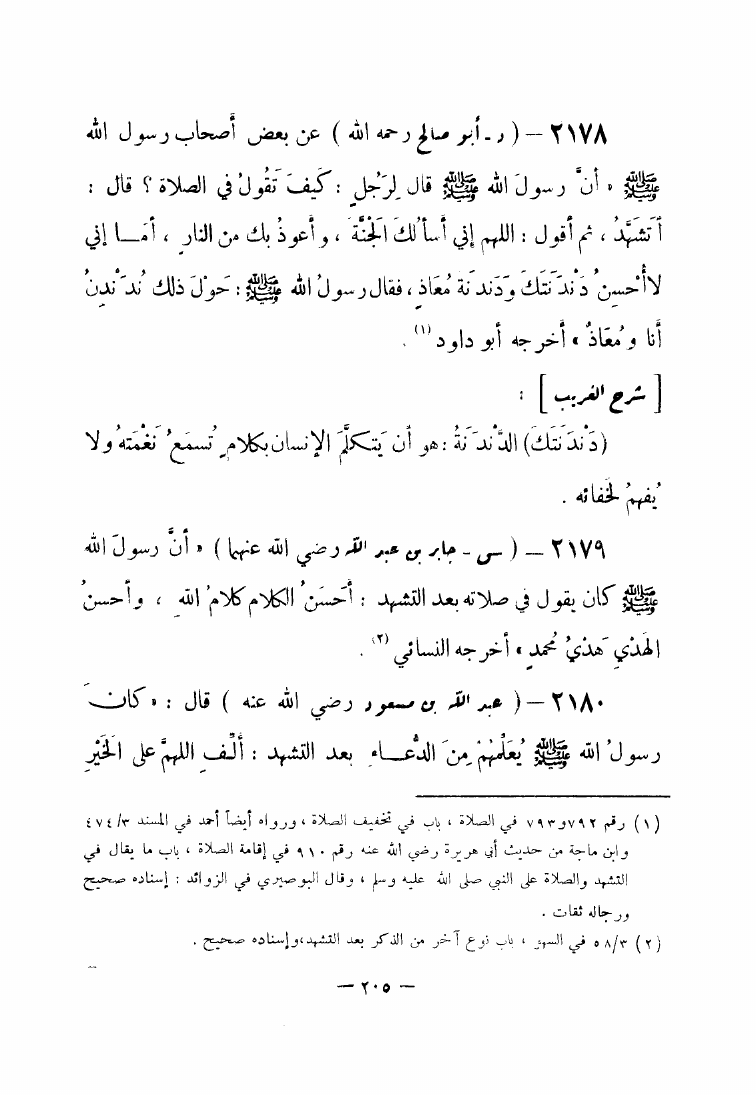 ٢١٧٨ – ( د - أبو صالح رحمه الله ) عن بعض أصحاب رسول الله
ﷺ « أنَّ رسولَ الله ﷺ قال لِرَجُلٍ : كَيفَ تَقُولُ في الصلاة ؟ قال :
أَتَشَهَّدُ ، ثم أقول : اللهم إني أسألُكَ الجَنَّةَ ، وأعوذُ بك من النارِ ، أمَـا إني
لا أُحْسِنُ دَنْدَنَتَكَ وَدَنْدَنَةَ مُعَاذٍ ، فقال رسولُ الله ﷺ : حَوْلَ ذلك نُدَنْدِنُ
أنا ومُعَاذٌ » أخرجه أبو داود (١) .
[ شرح الغريب ] :
(دَنْدَنَتَكَ) الدَّنْدَنَةُ : هو أن يَتكلَّمَ الإنسان بكلامٍ تُسمَعُ نَغْمَتهُ ولا
يُفهمُ لخَفائه .
٢١٧٩ – ( س - جابر بن عبد الله رضي الله عنهما ) « أنَّ رسولَ الله
ﷺ كان يقول في صلاته بعد التشهد : أَحسَنُ الكلام كلامُ اللهِ ، وأحسنُ
الهَدْيِ هَدْيُ مُحمدٍ » أخرجه النسائي (٢) .
٢١٨٠ – ( عبد الله بن مسعود رضي الله عنه ) قال : « كانَ
رسولُ الله ﷺ يُعَلِّمُهُمْ مِنَ الدُّعَـاءِ بعد التشهد : أَلِّفِ اللهمَّ على الخَيْرِ
(١) رقم ٧٩٢ و ٧٩٣ في الصلاة ، باب في تخفيف الصلاة ، ورواه أيضاً أحمد في المسند ٤٧٤/٣
وابن ماجة من حديث أبي هريرة رضي الله عنه رقم ٩١٠ في إقامة الصلاة ، باب ما يقال في
التشهد والصلاة على النبي صلى الله عليه وسلم ، وقال البوصيري في الزوائد : إسناده صحيح
ورجاله ثقات .
(٢) ٥٨/٣ في السهو ، باب نوع آخر من الذكر بعد التشهد،وإسناده صحيح .
– ٢٠٥ –